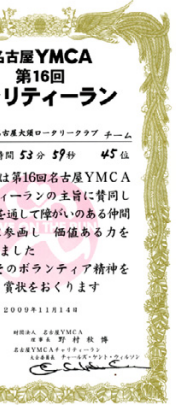 名古屋YMCA
第16回
リティーラン
古屋大須ロータリークラブ チーム
時間 53分 59秒 45位
は第16回名古屋YMCA
ティーランの主旨に賛同し
を通して障がいのある仲間
に参画し 価値ある力を
ました
そのボランティア精神を
賞状をおくります
2009年11月14日
財団法人 名古屋YMCA
理事長 野村秋博
名古屋YMCAチャリティーラン
大会委員長 チャールズ・ケント・ウィルソン